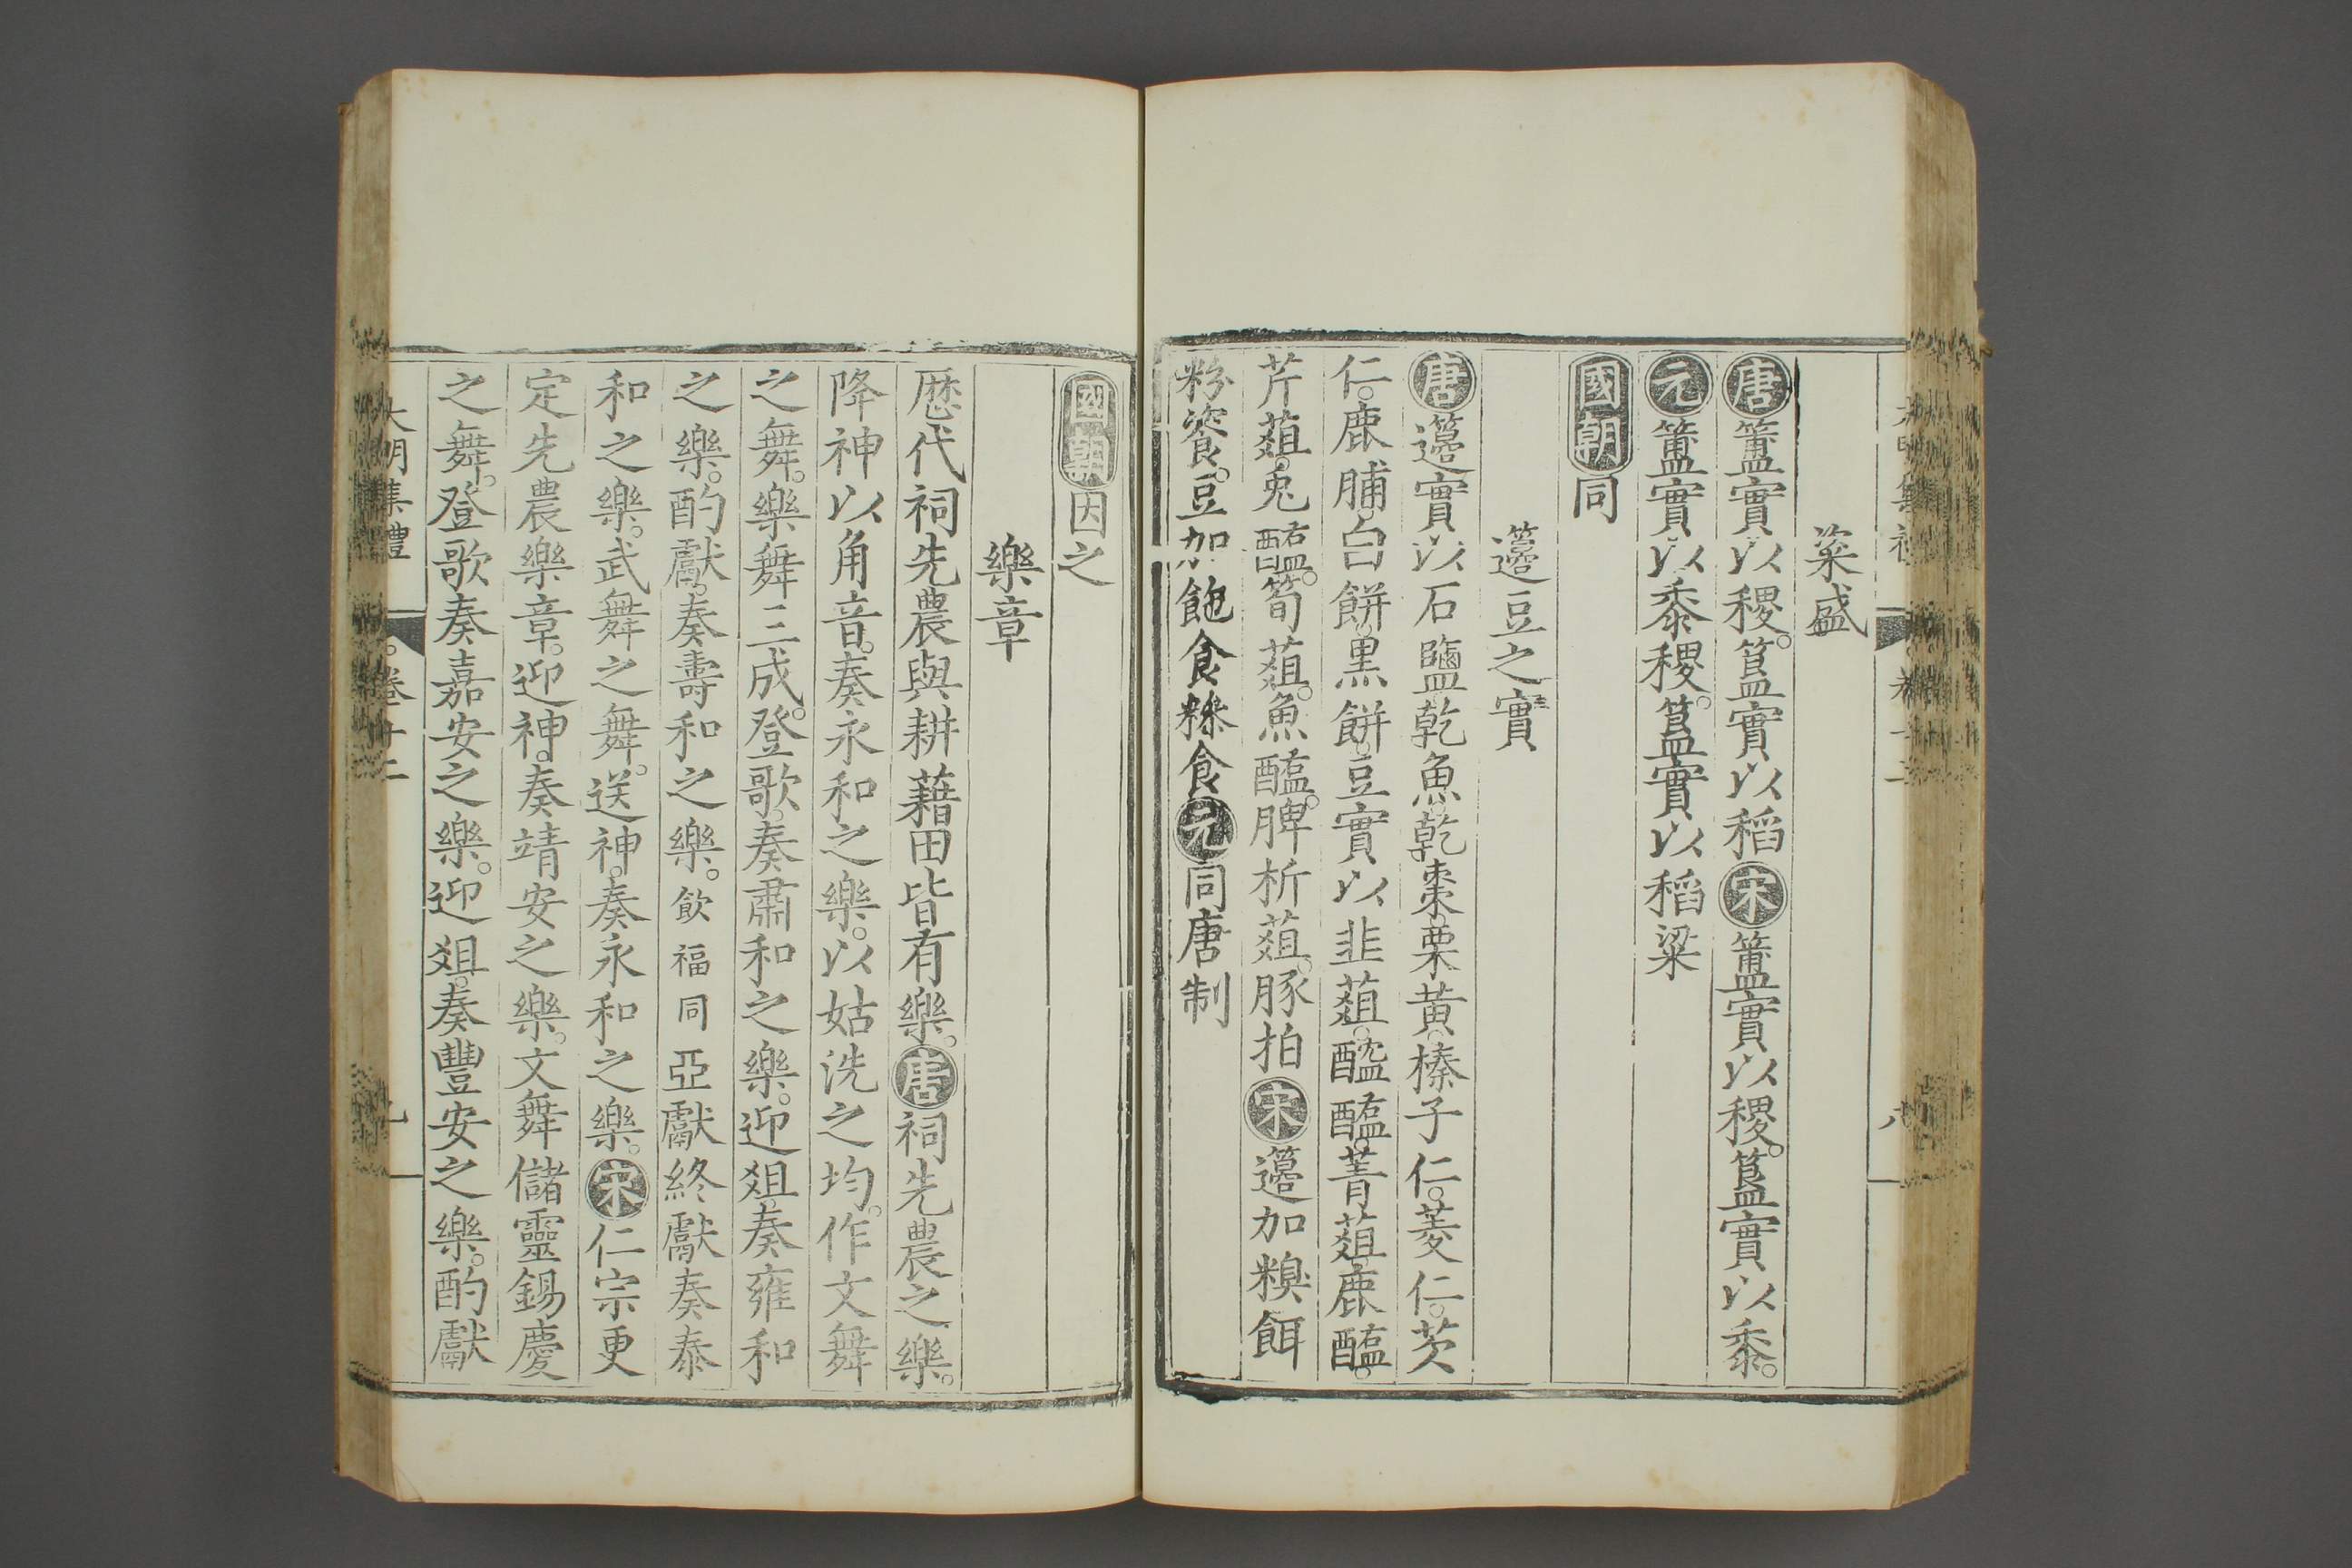 粢盛
唐簠實以稷。簋實以稻宋簠實以稷。簋實以黍。
元簠實以黍稷。簋實以稻粱
國朝同
籩豆之實
唐籩實以石鹽乾魚乾棗栗黄。榛子仁。菱仁。芡
仁。鹿脯。白餅。黒餅。豆實以韭葅。醓醢。菁葅。鹿醢。
芹葅。兎醢。筍葅。魚醢。脾析葅。豚拍宋籩加糗餌
粉餈。豆加飽食糝食元同唐制
國朝因之
樂章
歴代祠先農與耕藉田皆有樂。唐祠先農之樂。
降神以角音。奏永和之樂。以姑洗之均。作文舞
之舞。樂舞三成。登歌。奏肅和之樂。迎俎。奏雍和
之樂。酌獻。奏壽和之樂。飲福同亞獻終獻奏泰
和之樂。武舞之舞。送神。奏永和之樂。宋仁宗更
定先農樂章。迎神。奏靖安之樂。文舞儲靈錫慶
之舞。登歌奏嘉安之樂。迎俎。奏豐安之樂。酌獻
大明集禮 卷十二